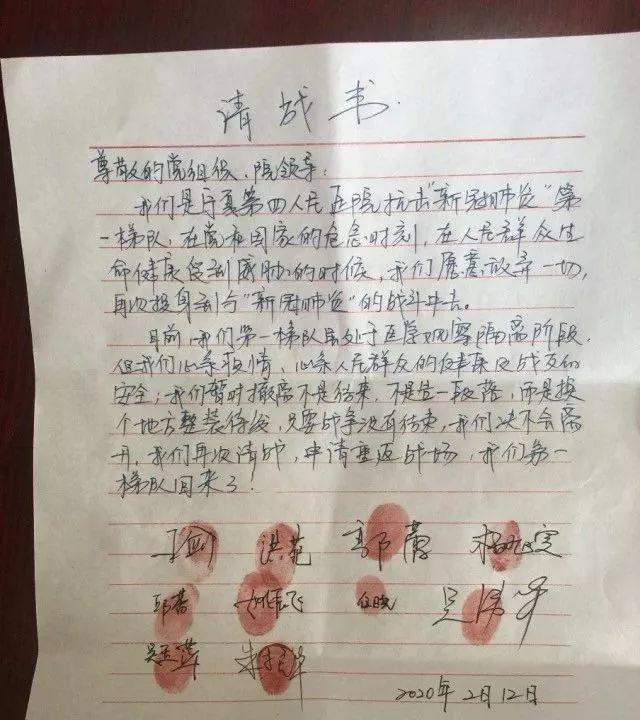 请战书.
尊敬的党组织、院领导:
我们是宜宾第四人民医院抗击"新冠肺炎"第
一梯队,在党和国家的危急时刻,在人民群众生
命健康受到威胁的时候,我们愿意放弃一切,
再次投身到与"新冠肺炎"的战斗中去。
目前,我们第一梯队虽处于医学观察隔离阶段,
但我们心系疫情、心系人民群众的健康及战友的
安全;我们暂时撤离不是结束,不是告一段落,而是换
个地方整装待战,只要战争没有结束,我们决不会离
开,我们再次请战,申请重返战场,我们第一
梯队回来了!
洪范
2020年2月12日